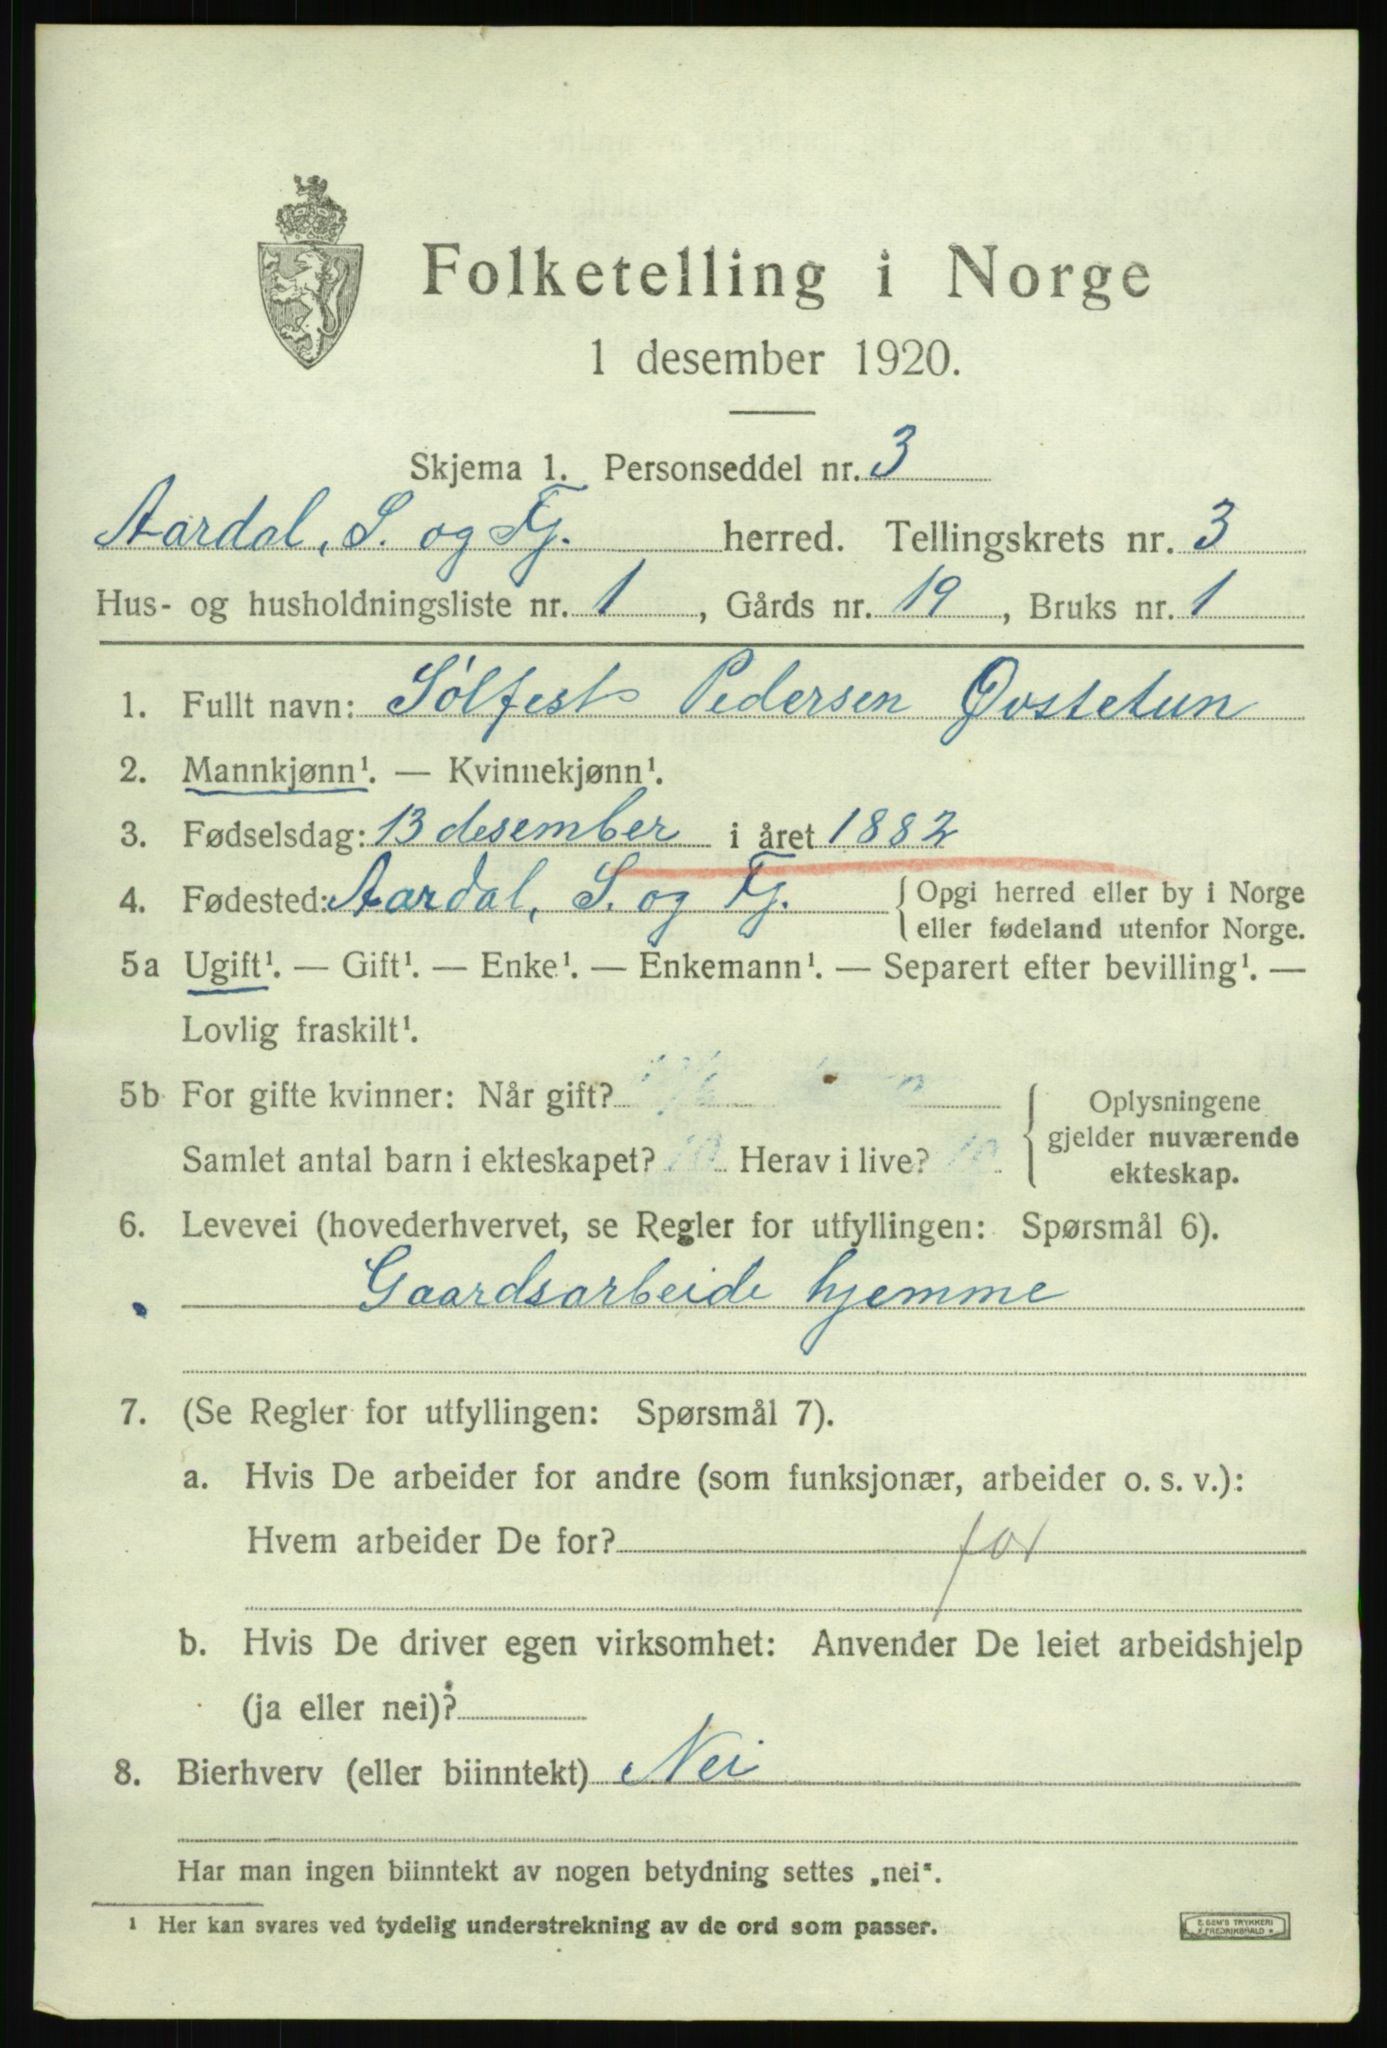 Folketelling i Norge
1 desember 1920.
Skjema 1. Personseddel nr. 3
Aardal, S. og Fj. herred. Tellingskrets nr. 3
Hus- og husholdningsliste nr. 1, Gårds nr. 19, Bruks nr. 1
1. Fullt navn: Sølfest Pedersen Øvstetun
2. Mannkjønn¹. — Kvinnekjønn¹.
3. Fødselsdag: 13 desember i året 1882
4. Fødested: Aardal, S. og Fj. { Opgi herred eller by i Norge
eller fødeland utenfor Norge.
5a Ugift¹. — Gift¹. — Enke¹. — Enkemann¹. — Separert efter bevilling¹. —
Lovlig fraskilt¹.
5b For gifte kvinner: Når gift?
Samlet antal barn i ekteskapet? 10 Herav i live? 10
{ Oplysningene
gjelder nuværende
ekteskap.
6. Levevei (hovederhvervet, se Regler for utfyllingen: Spørsmål 6).
Gaardsarbeide hjemme
7. (Se Regler for utfyllingen: Spørsmål 7).
a. Hvis De arbeider for andre (som funksjonær, arbeider o. s. v.):
Hvem arbeider De for? for
b. Hvis De driver egen virksomhet: Anvender De leiet arbeidshjelp
(ja eller nei)?
8. Bierhverv (eller biinntekt) Nei
Har man ingen biinntekt av nogen betydning settes „nei“.
¹ Her kan svares ved tydelig understrekning av de ord som passer.
E. SEM'S TRYKKERI
FREDRIKSHALD